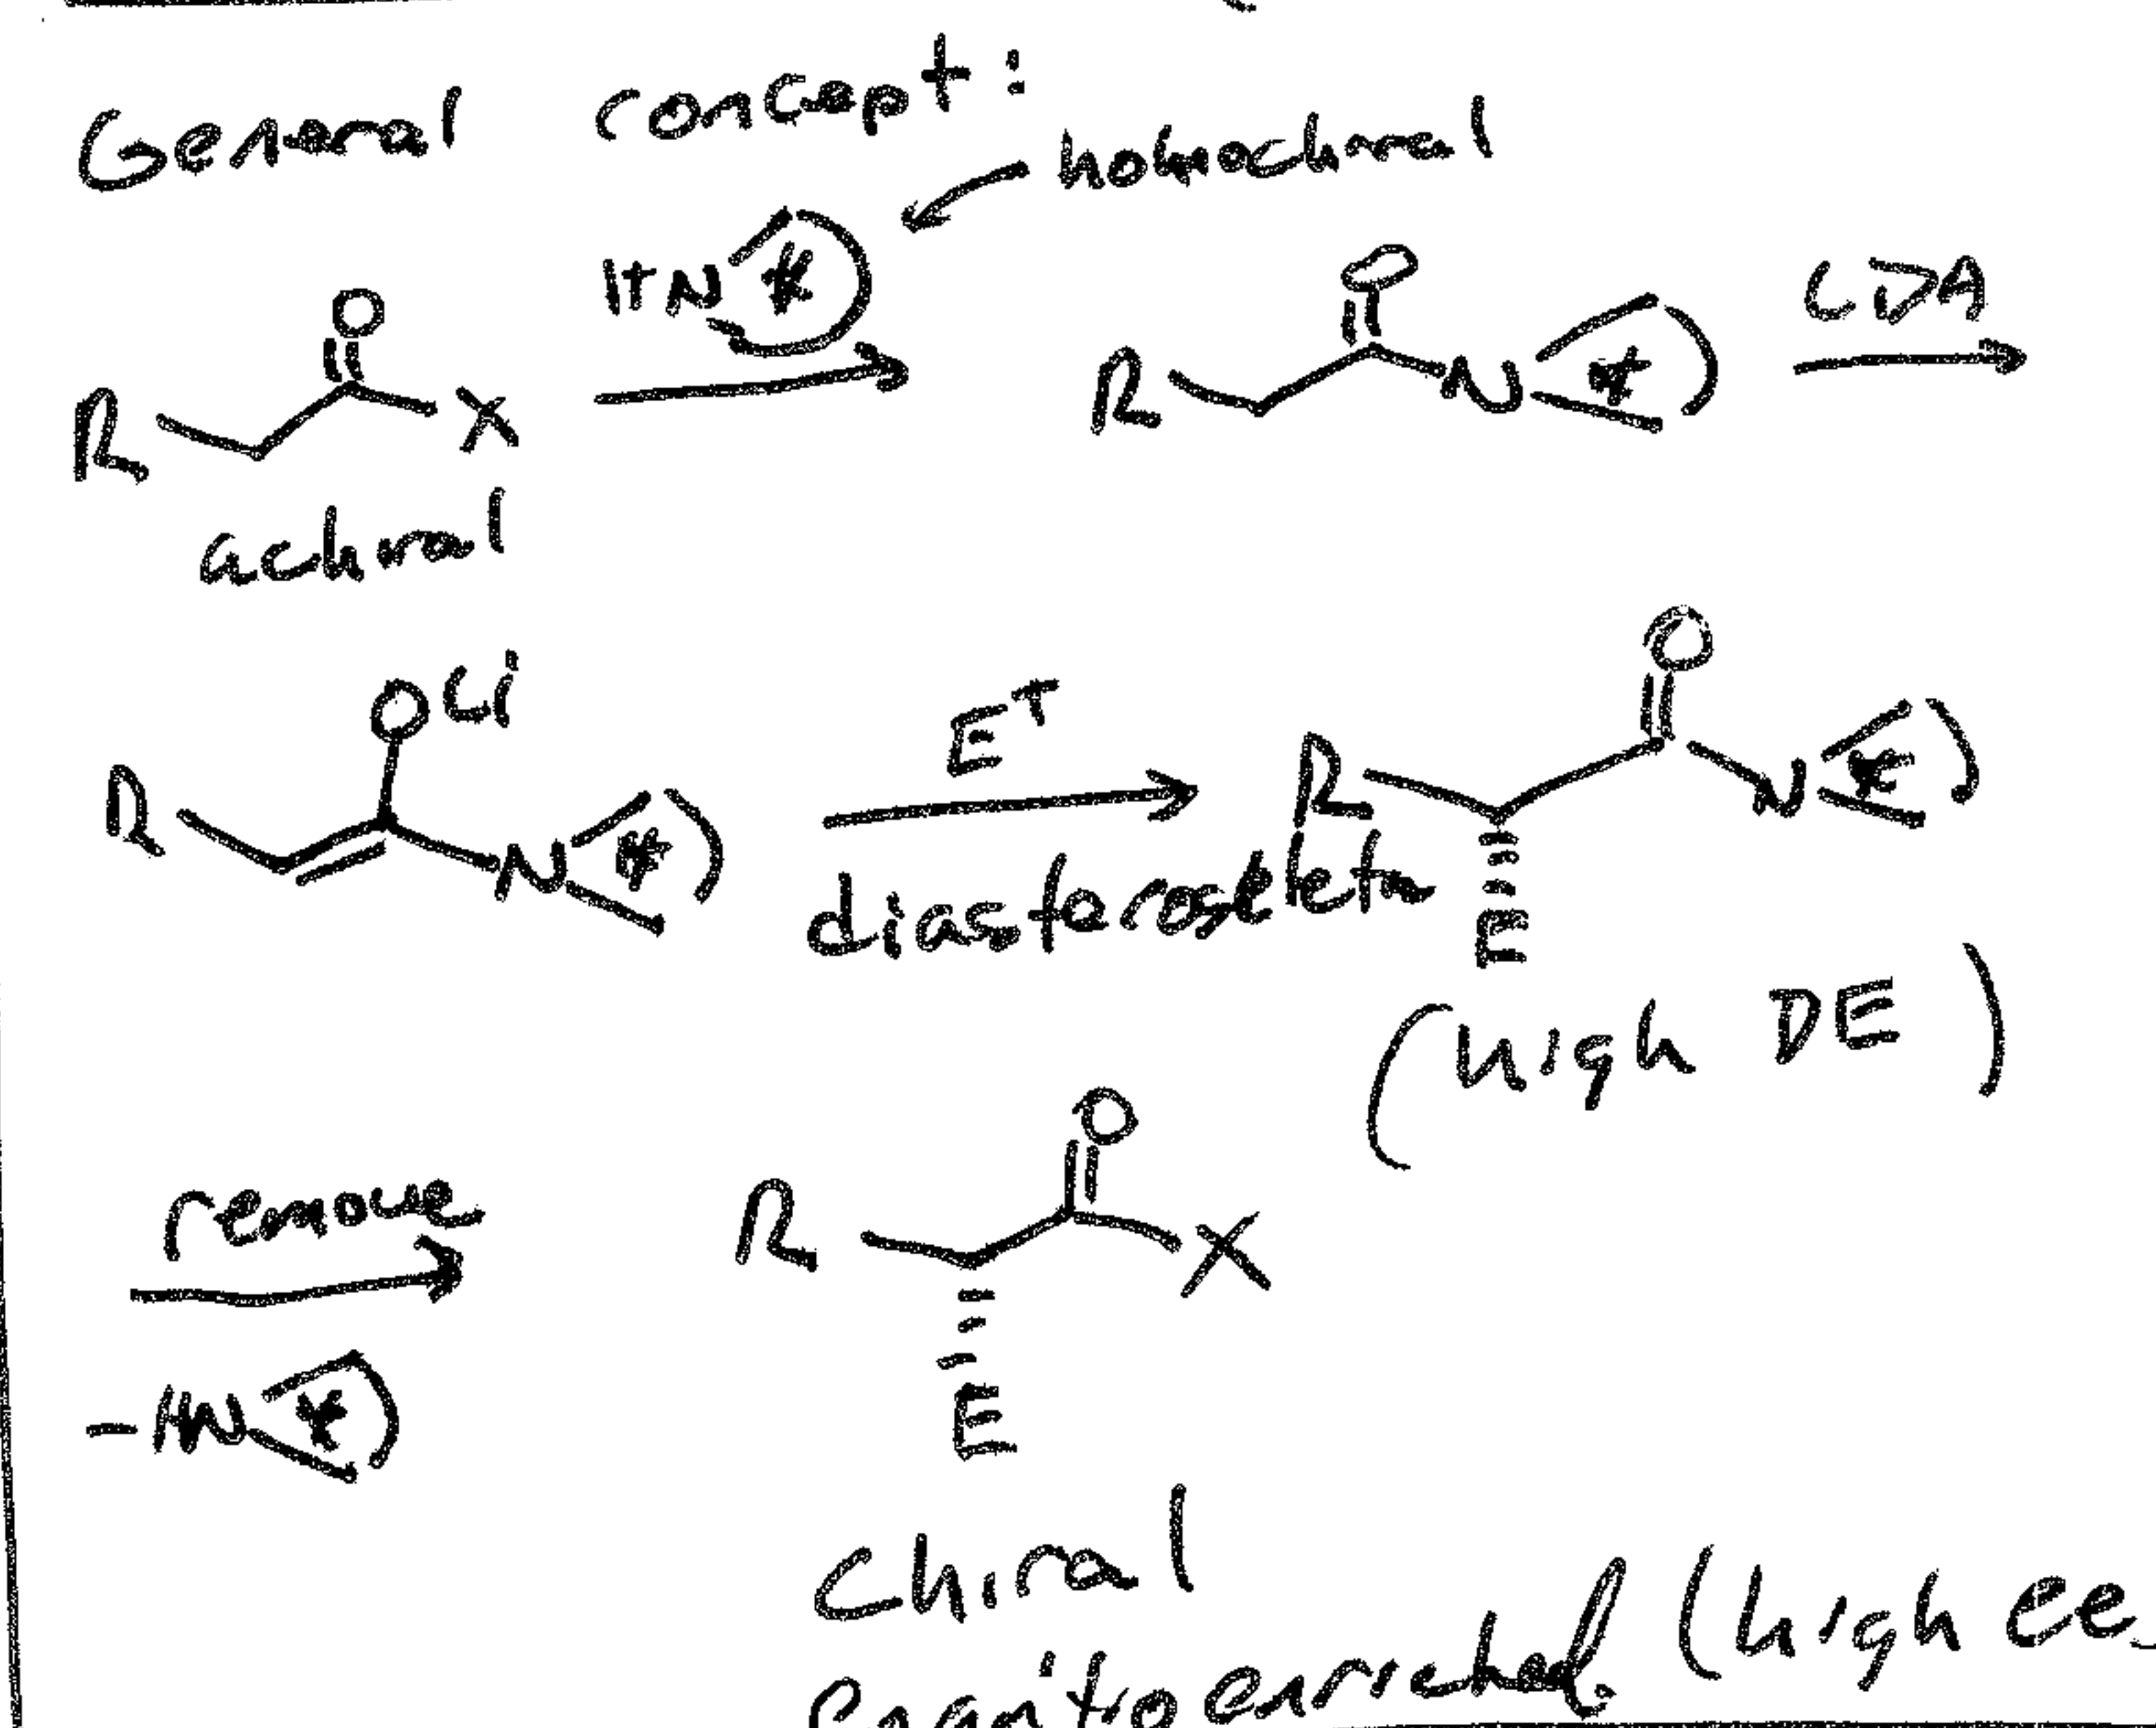 General concept:
homochiral
HN *
O
R X
achiral
O
R N *
LDA
OLi
R N *
E+
diasteroselectn
O
R N *
E
(high DE)
remove
-HN *
O
R X
E
Chiral
enantioenriched (high ee